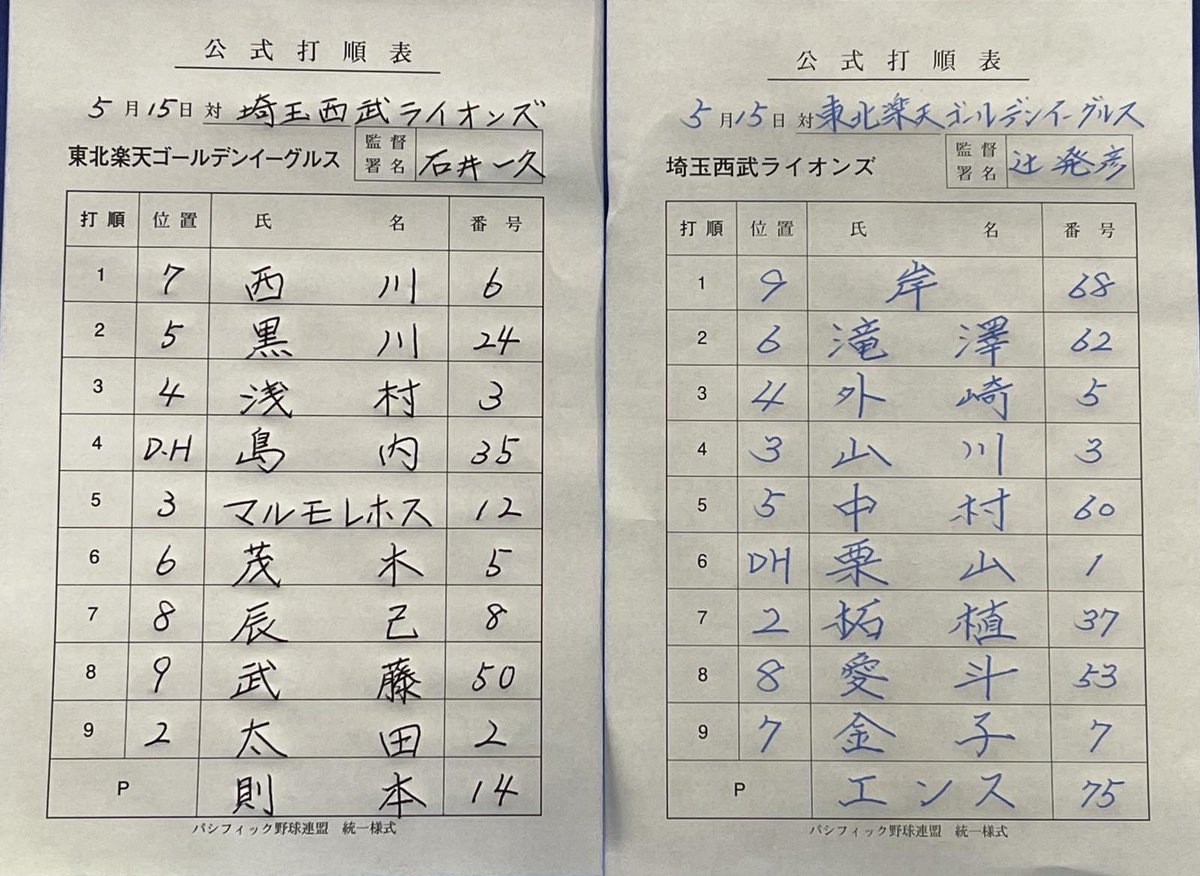 公式打順表
5月15日 対 埼玉西武ライオンズ
東北楽天ゴールデンイーグルス 監督署名 石井一久
打順 位置 氏名 番号
1 7 西川 6
2 5 黒川 24
3 4 浅村 3
4 D.H 島内 35
5 3 マルモレホス 12
6 6 茂木 5
7 8 辰己 8
8 9 武藤 50
9 2 太田 2
P 則本 14
パシフィック野球連盟 統一様式
公式打順表
5月15日 対 東北楽天ゴールデンイーグルス
埼玉西武ライオンズ 監督署名 辻発彦
打順 位置 氏名 番号
1 9 岸 68
2 6 滝澤 62
3 4 外崎 5
4 3 山川 3
5 5 中村 60
6 DH 栗山 1
7 2 柘植 37
8 8 愛斗 53
9 7 金子 7
P エンス 75
パシフィック野球連盟 統一様式